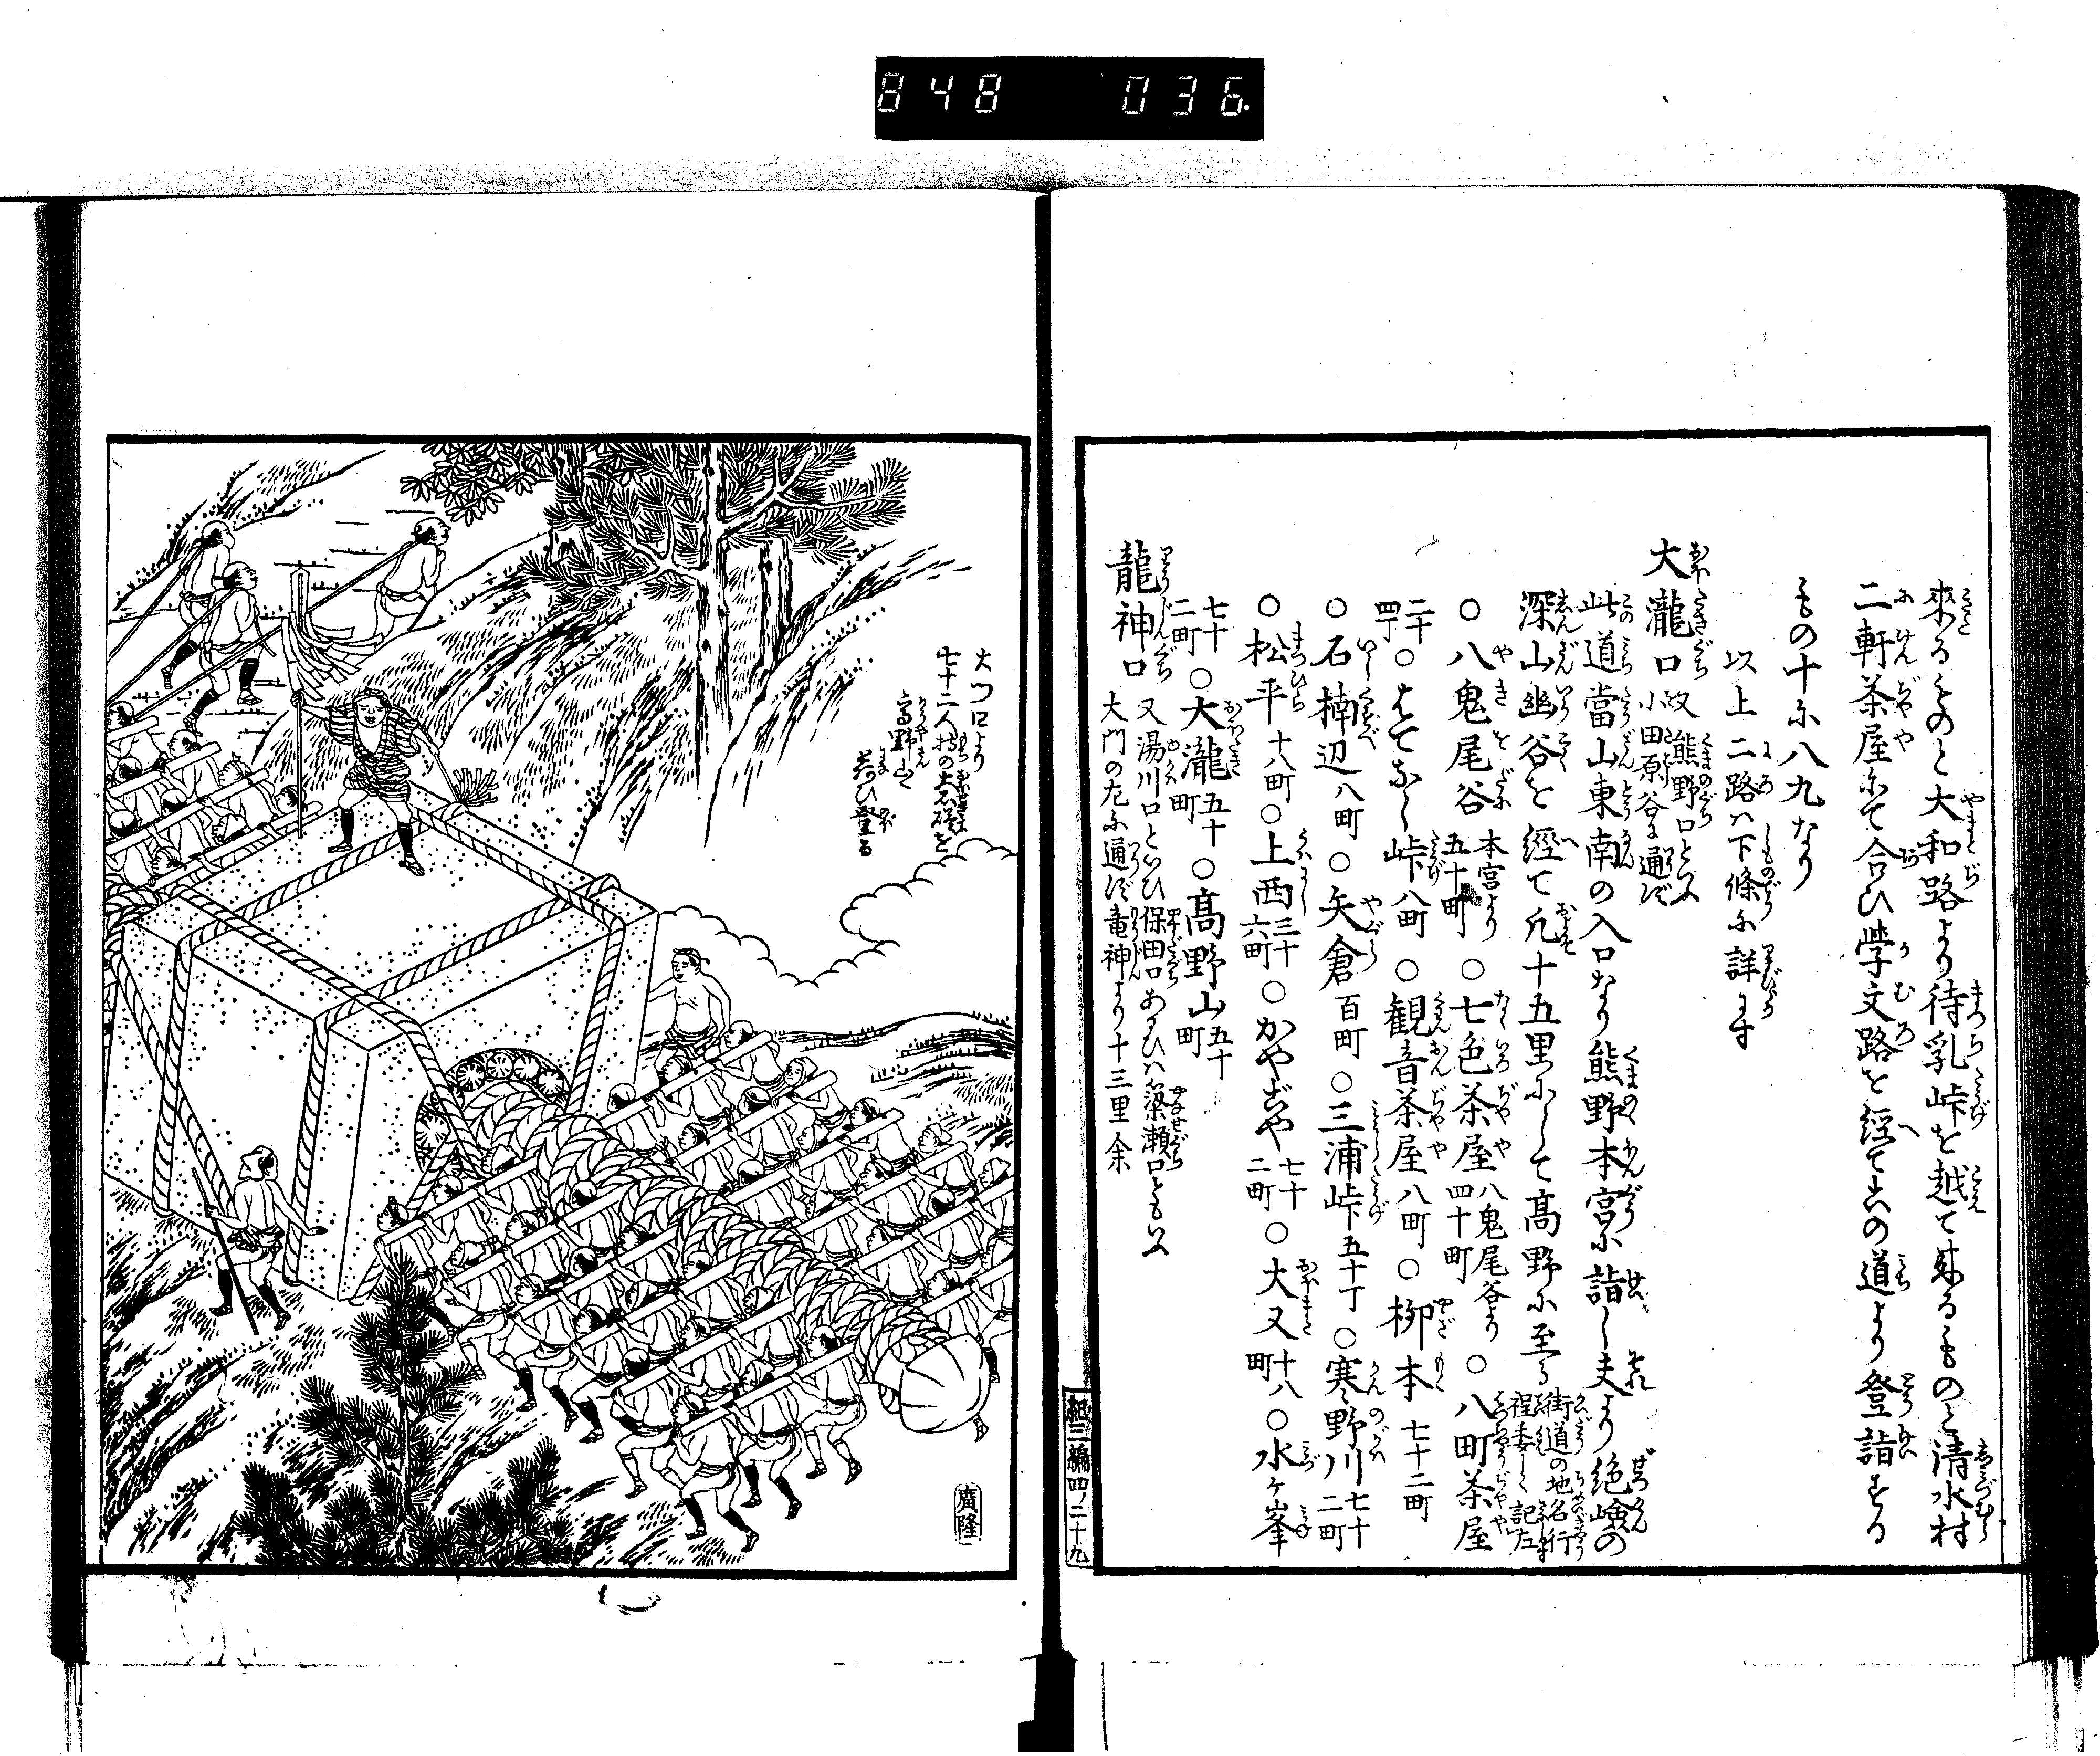 848 036.
來るものと大和路より待乳峠を越て來るものと清水村
二軒茶屋にて合ひ学文路を經て此の道より登詣する
もの十に八九なり
以上二路ハ下條に詳にす
大瀧口 又熊野口といふ
小田原谷に通ず
此道當山東南の入口なり熊野本宮に詣し夫より絶嶮の
深山幽谷を經て凡十五里にして高野に至る 街道の地名行
程委しく記左
○八鬼尾谷 本宮より
五十町 ○七色茶屋 八鬼尾谷より
四十町 ○八町茶屋
二十
四丁 ○はてなし峠 八町 ○観音茶屋 八町 ○柳本 七十二町
○石楠辺 八町 ○矢倉 百町 ○三浦峠 五十丁 ○寒野川 七十
二町
○松平 十八町 ○上西 三十
六町 ○かやごや 七十
二町 ○大又 十八
町 ○水ヶ峯
七十
二町 ○大瀧 五十
町 ○髙野山 五十
町
龍神口 又湯川口といひ保田口あるひハ簗瀬口ともいふ
大門の左に通ず竜神より十三里余
紀三編四ノ二十九
大門口より
七十二人持の大石碑を
高野山へ
荷ひ登る
廣隆